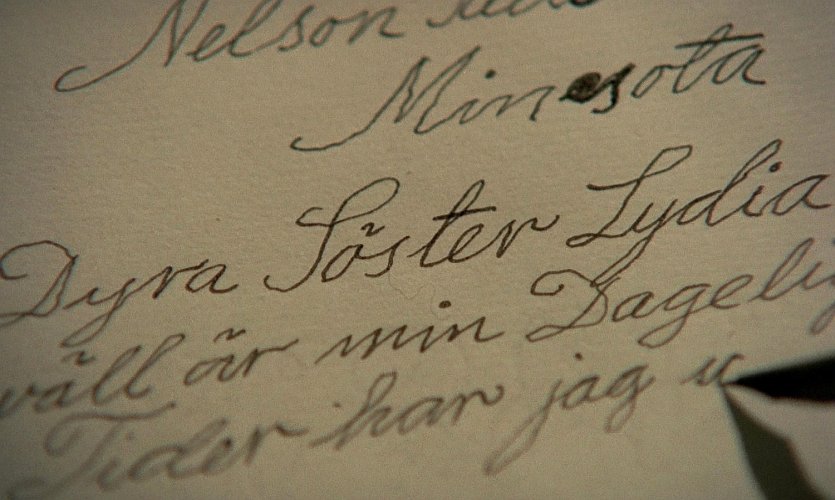 Nelson
Minesota
Dyra Söster Lydia
väll är min Dagelig
Tider har jag u